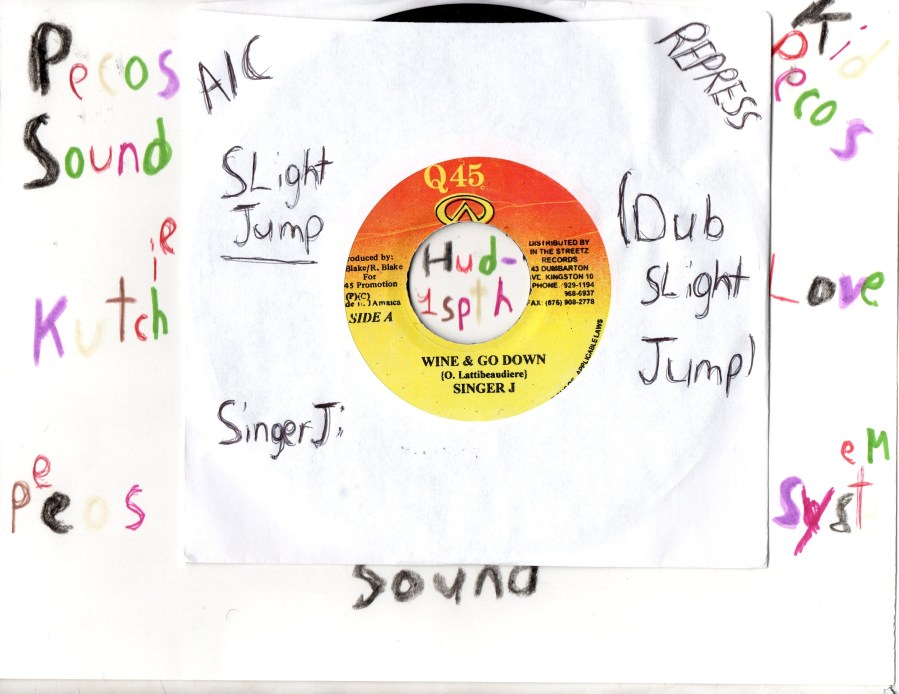 Pecos
Sound
Kutchie
Peecos
A/C
REPRESS
SLight
Jump
Singer J;
(Dub
SLight
Jump)
Kid
Pecos
Love
SysteM
Sound
Q 45
roduced by:
Blake/R. Blake
For
45 Promotion
(P)(C)
SIDE A
DISTRIBUTED BY
IN THE STREETZ
RECORDS
43 DUMBARTON
VE. KINGSTON 10
PHONE: 929-1194
968-6937
FAX: (876) 908-2778
APPLICABLE LAWS
Hud-
1spth
WINE & GO DOWN
(O. Lattibeaudiere)
SINGER J